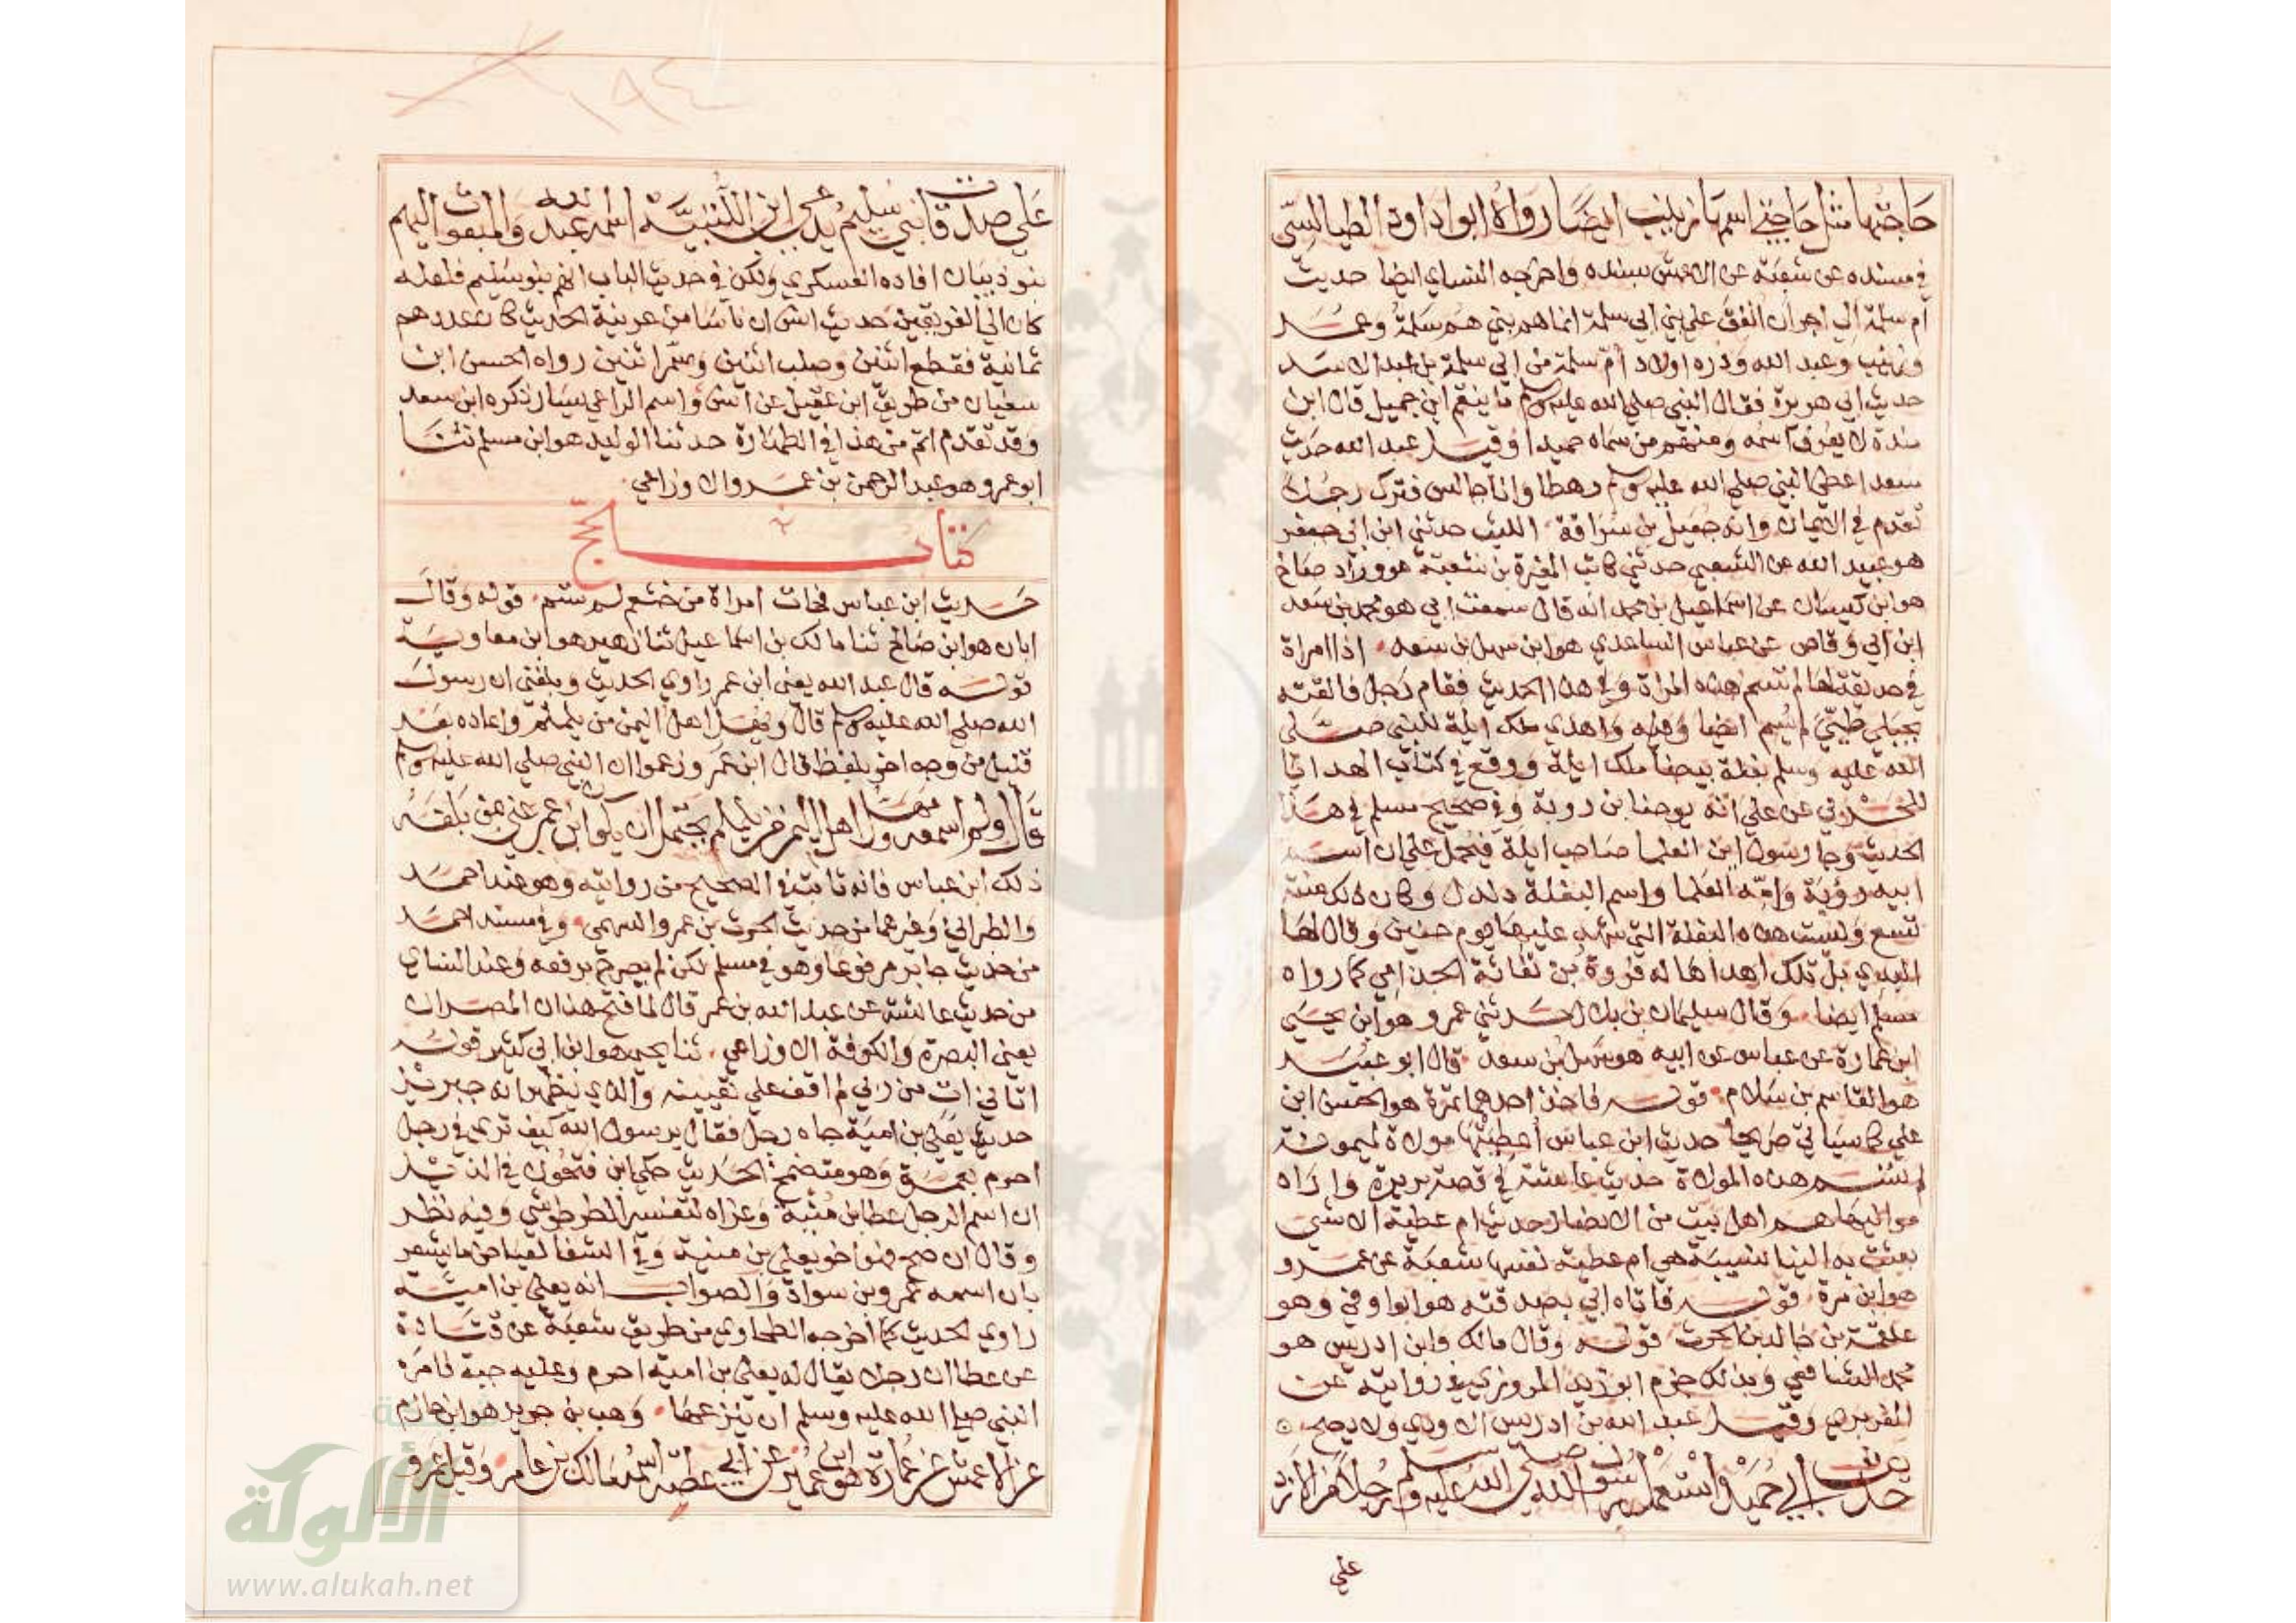 حاجتها مثل حاجتي اسمها زينب ايضا رواه ابوا داود الطيالسي
في مسنده عن شعبة عن الاعمش بسنده واخرجه النساي ايضا حديث
ام سلمة الي اجر ان انفق علي بني ابي سلمة انما هم بني هم سلمة وعمر
وزينب وعبد الله ودره اولاد ام سلمة من ابي سلمة بن عبد الاسد
حديث ابي هريرة فقال النبي صلي الله عليه وسلم ما ينقم ابن جميل قال ابن
مندة لا يعرف اسمه ومنهم من سماه حميدا وقيل عبد الله حديث
سعد اعطي النبي صلي الله عليه وسلم رهطا وانا جالس فترك رجلا
تقدم في الايمان وانه جعيل بن سراقة الليث حدثني ابن ابي جعفر
هو عبيد الله عن الشعبي حدثني كاتب المغيرة بن شعبة هو وراد صالح
هو ابن كيسان عن اسماعيل بن محمد انه قال سمعت ابي هو محمد بن سعد
ابن ابي وقاص عن عباس الساعدي هو ابن سهل بن سعد اذا امراة
في حديقة لها لم تسم هذه المراة وفي هذا الحديث فقام رجل فالقته
بجبلي طيئ لم يسم ايضا وفيه واهدي ملك ايلة للنبي صلي
الله عليه وسلم بغلة بيضا ملك ايلة ووقع في كتاب الهدايا
للحربي عن علي انه يوحنا بن روبة وفي صحيح مسلم في هذا
الحديث وجا رسول ابن العلما صاحب ايلة فيحمل علي ان اسم
ابيه روبة وامه العلما واسم البغلة دلدل وكان ذلك سنة
تسع وليست هذه البغلة التي شهد عليها يوم حنين وقال لها
البيدي بل تلك اهداها له فروة بن نفاثة الجذامي كما رواه
مسلم ايضا وقال سليمان بن بلال حدثني عمرو هو ابن يحيي
ابن عمارة عن عباس عن ابيه هو سهل بن سعد قال ابو عبيد
هو القاسم بن سلام قوله فاخذ احدهما تمرة هو الحسن ابن
علي كما سياتي صريحا حديث ابن عباس اعطيتها مولاة لميمونة
لم تسم هذه المولاة حديث عايشة في قصة بريرة واراد
مواليها هم اهل بيت من الانصار حديث ام عطية الا شي
بعثت به الينا نسيبة هي ام عطية نفسها شعبة عن عمرو
هو ابن مرة قوله فاتاه ابي بصدقته هو ابوا وفي وهو
علقمة بن خالد بن الحرث قوله وقال مالك وابن ادريس هو
محمد الشافعي وبذلك جزم ابو زيد المروزي في روايته عن
الفربري وقيل عبد الله بن ادريس الاودي ولا يصح
حديث ابي حميد واستعمل رسول الله صلي الله عليه وسلم رجلا من الازد
علي
علي صدقات بني سليم يدعي ابن اللتبية اسمه عبد الله والمبعوث اليهم
بنو ذبيان افاده العسكري ولكن في حديث الباب انهم بنو سليم فلعله
كان الي الفريقين حديث انس ان ناسا من عرينة الحديث كان عددهم
ثمانية فقطع اثنين وصلب اثنين وسمر اثنين رواه الحسن ابن
سفيان من طريق ابن عقيل عن انس واسم الراعي يسار ذكره ابن سعد
وقد تقدم اتم من هذا في الطهارة حدثنا الوليد هو ابن مسلم ثنا
ابو عمرو هو عبد الرحمن بن عمرو الاوزاعي
كتاب الحج
حديث ابن عباس فجات امراة من خثعم لم تسم قوله وقال
ابان هو ابن صالح ثنا مالك بن اسماعيل ثنا زهير هو ابن معاوية
قوله قال عبد الله يعني ابن عمر راوي الحديث وبلغني ان رسول
الله صلي الله عليه وسلم قال ويهل اهل اليمن من يلملم واعاده بعد
قليل من وجه اخر بلفظ قال ابن عمر وزعموا ان النبي صلي الله عليه وسلم
قال ولم اسمعه ومهل اهل اليمن من يلملم يحتمل ان يكون ابن عمر عني بمن بلغه
ذلك ابن عباس فانه ثابت في الصحيح من روايته وهو عند احمد
والطبراني وغيرهما من حديث الحرث بن عمرو السهمي وفي مسند احمد
من حديث جابر مرفوعا وهو في مسلم لكن لم يصرح برفعه وعند النساي
من حديث عايشة عن عبد الله بن عمر قال لما فتح هذان المصران
يعني البصرة والكوفة الاوزاعي ثنا يحيي هو ابن ابي كثير قوله
اتاني ات من ربي لم اقف علي تعيينه والذي يظهر انه جبريل
حديث يعلي بن امية جاه رجل فقال يرسول الله كيف تري في رجل
احرم بعمرة وهو متضمخ الحديث حكي ابن فتحون في الذيل
ان اسم الرجل عطا بن منية وعزاه لتفسير الطرطوشي وفيه نظر
وقال ان صح فهو اخو يعلي بن منية وفي الشفا لعياض ما يشعر
بان اسمه عمرو بن سواد والصواب انه يعلي بن امية
راوي الحديث كما اخرجه الطحاوي من طريق شعبة عن قتادة
عن عطا ان رجلا يقال له يعلي بن امية احرم وعليه جبة فامره
النبي صلي الله عليه وسلم ان ينزعها وهب بن جرير هو ابن حازم
عن الاعمش عن عمارة هو ابن عمير عن ابي عطية اسمه مالك بن عامر وقيل عمرو
الألوكة
www.alukah.net